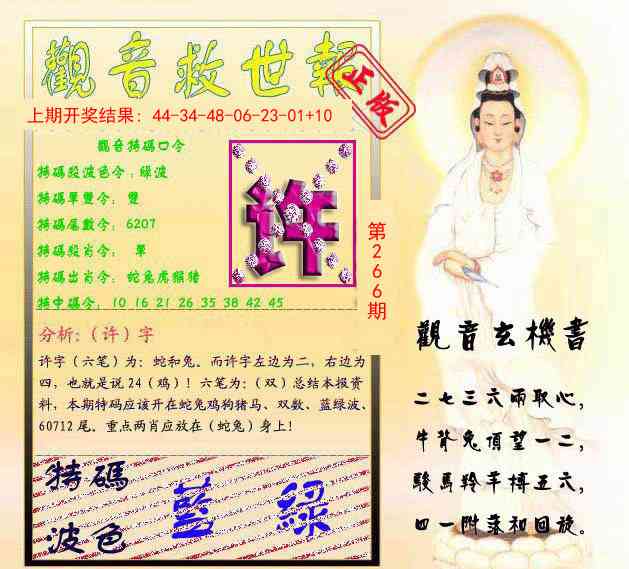 觀音救世報
正版
上期开奖结果：44-34-48-06-23-01+10
觀音特碼口令
特碼殺波色令：綠波
特碼單雙令：雙
特碼尾數令：6207
特碼殺肖令：單
特碼出肖令：蛇兔虎猴猪
特中碼令：10 16 21 26 35 38 42 45
许
第266期
分析:（许）字
许字（六笔）为：蛇和兔。而许字左边为二，右边为
四，也就是说24（鸡）！六笔为：（双）总结本报资
料，本期特码应该开在蛇兔鸡狗猪马、双数、蓝绿波、
60712尾。重点两肖应放在（蛇兔）身上！
特碼
波色
藍 綠
觀音玄機書
二七三六兩取心，
牛背兔頂望一二，
駿馬羚羊搏五六，
四一附落和回旋。